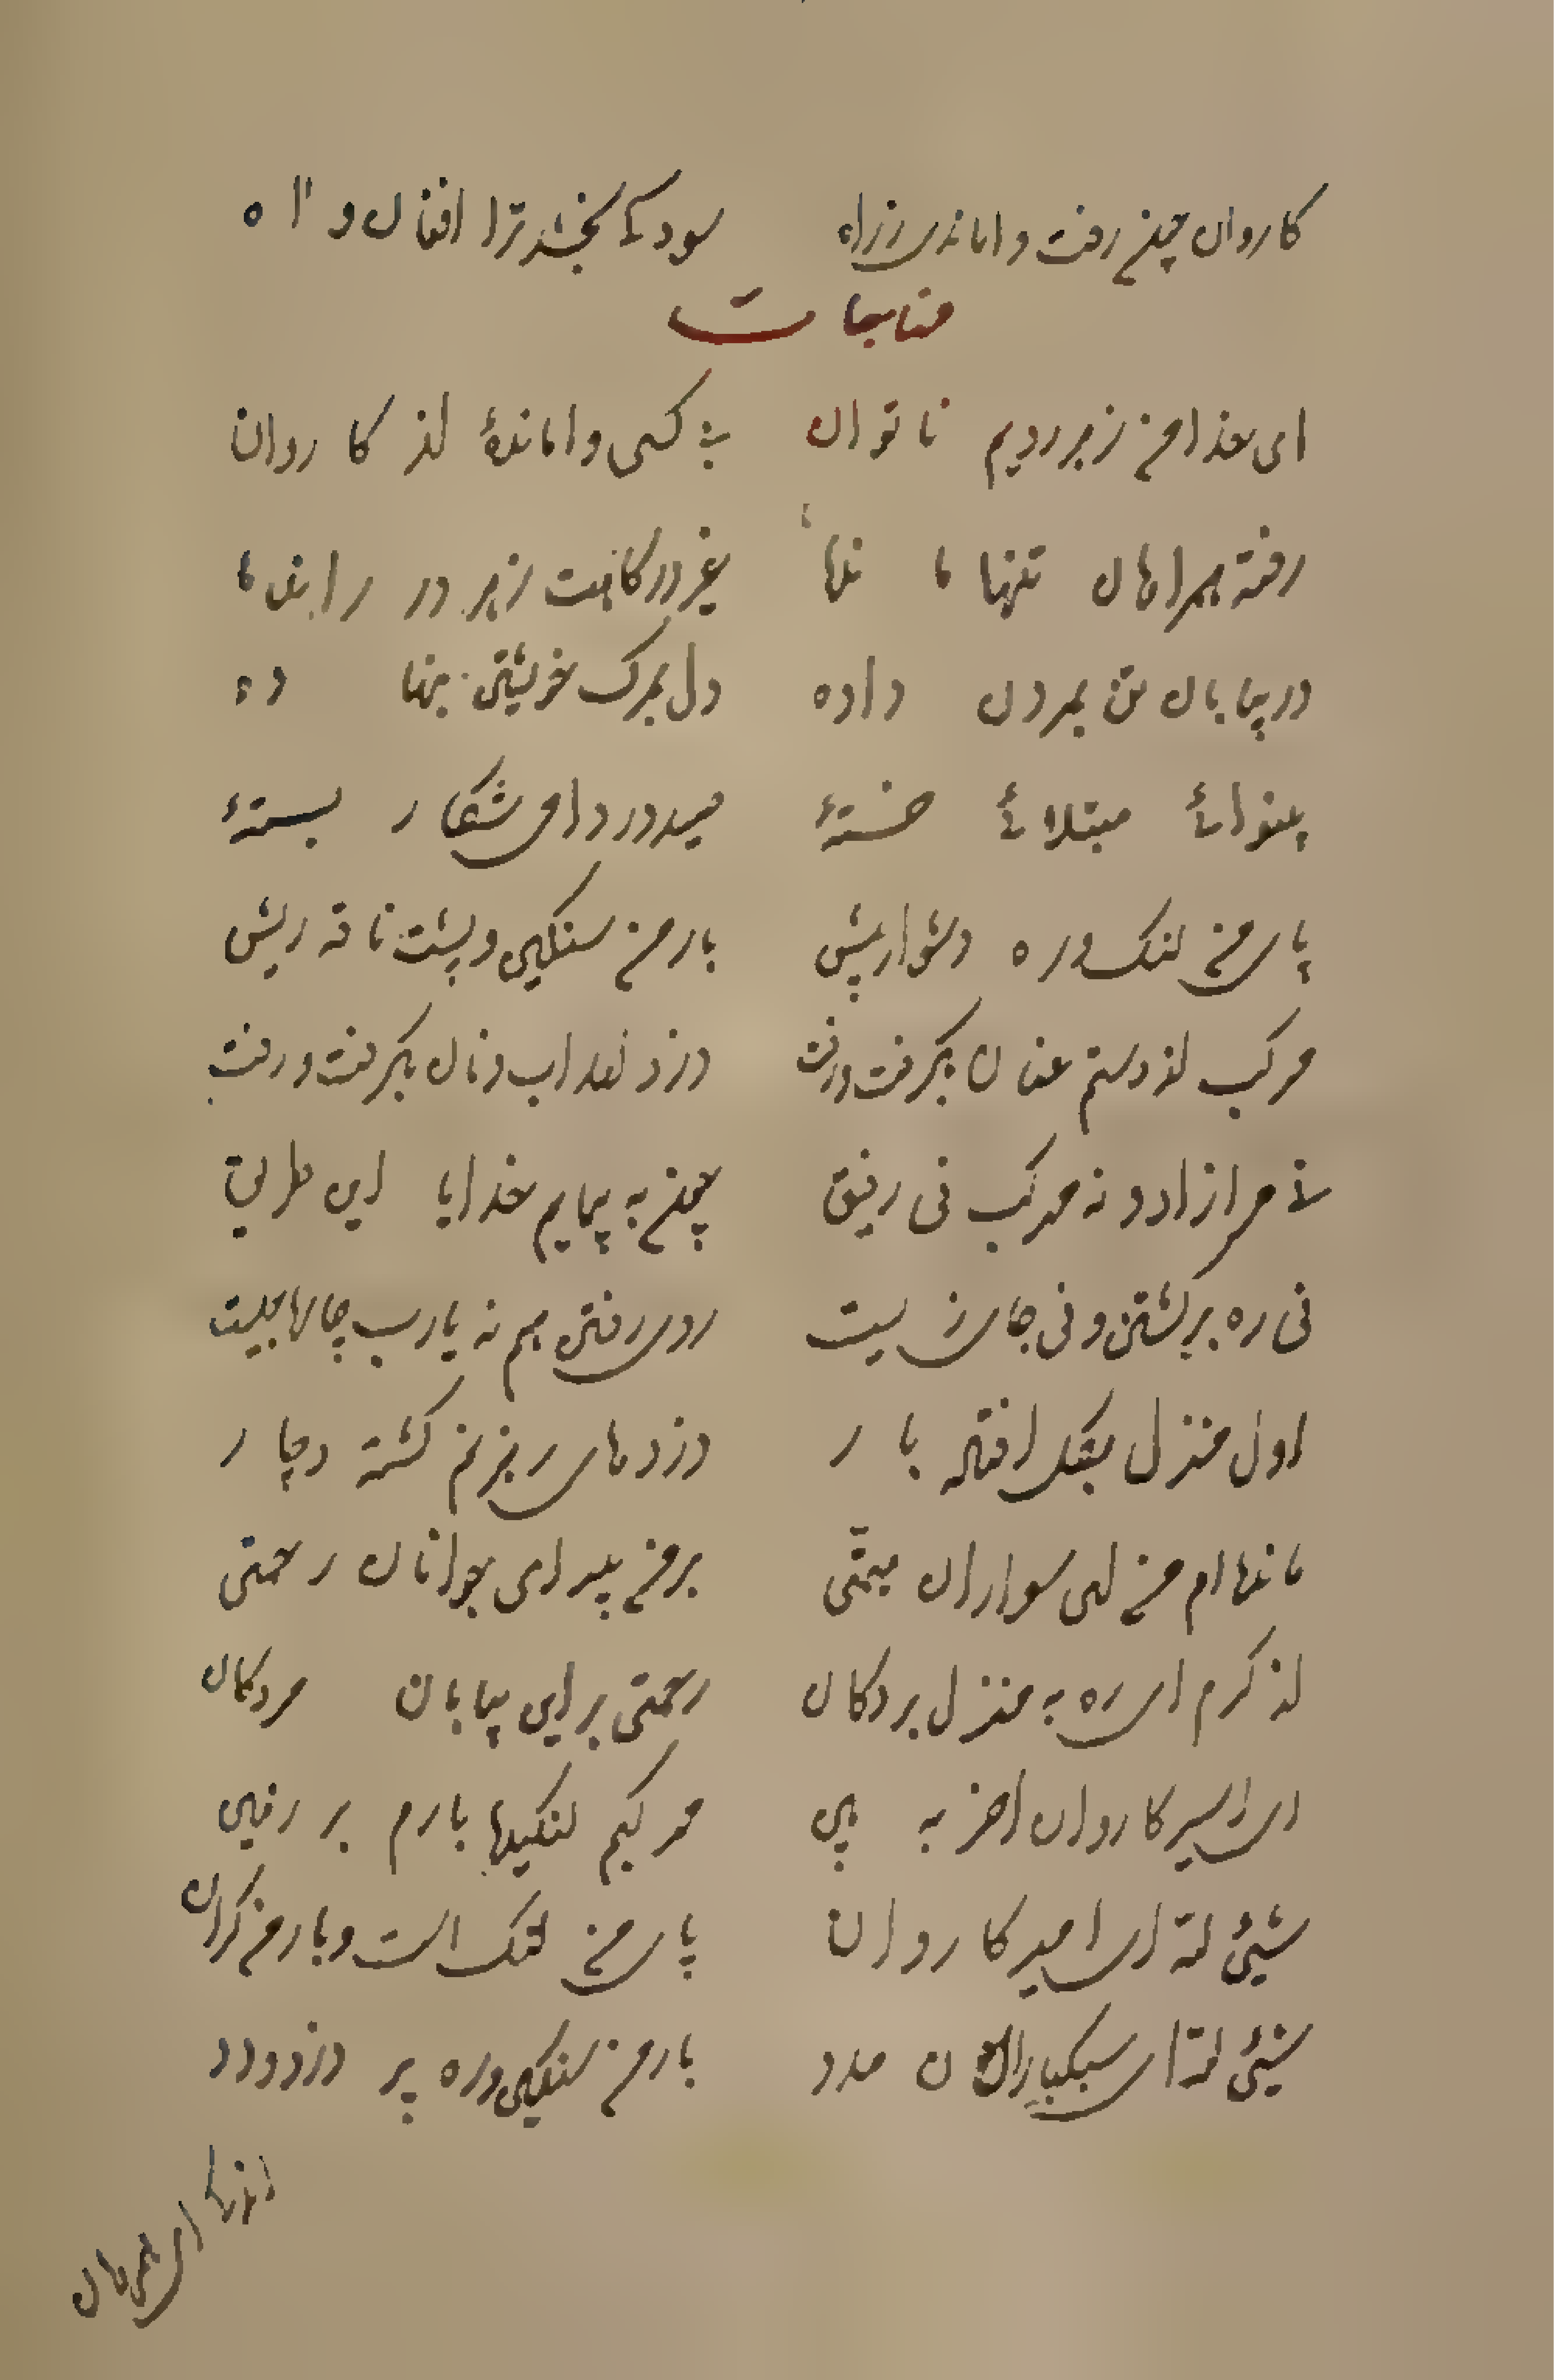 کاروان چون رفت و اماندی ز راه سود کی بخشد ترا افغان و آه
مناجات
ای خدا من زبردیم ناتوان بی کسی واماندهٔ از کاروان
رفته همراهان تنها ما ندها غیر درکاهت زهر در راندها
در بیابان تن بمردن داده دل بمرک خویشتن بنهاده
بینوائی مبتلائی خستهٔ صید در دامی شکار بستهٔ
پای من لنک و ره دشوار پیش بار من سنکین و پشت ناقه ریش
مرکب از دستم عنان بکرفت و رفت دزد آمد آب و نان بکرفت و رفت
نی مرا زاد و نه مرکب نی رفیق چون به پیمایم خدایا این طریق
نی ره برکشتن و نی جای زیست روی رفتن هم نه یارب چاره چیست
اول منزل بکل افتاد بار دزدهای رهزنم کشته دچار
مانده ام من ای سواران همتی بر من پیر ای جوانان رحمتی
از کرم ای ره به منزل بردکان رحمتی بر این بیابان مردکان
ای امیر کاروان آخر به بین مرکبم لنکیدها بارم بر زمین
شیئی لله ای امیر کاروان پای من لنک است و بار من کران
شیئی لله ای سبکباران مدد بار من سنکین و ره پر دزد و دد
اندکی ای همرهان